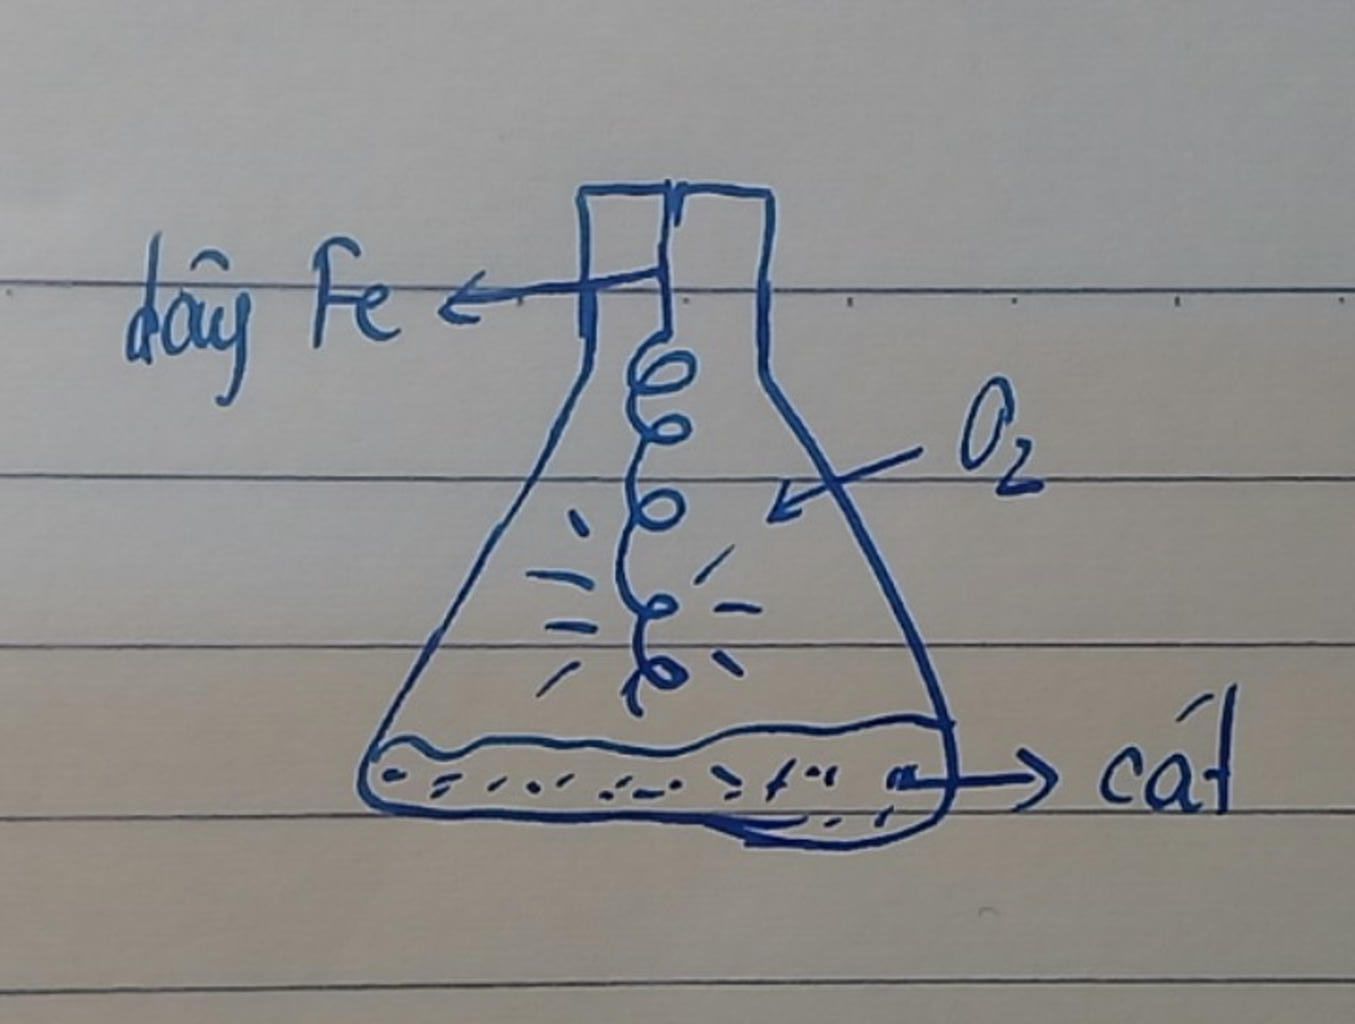 dây Fe
O₂
cát